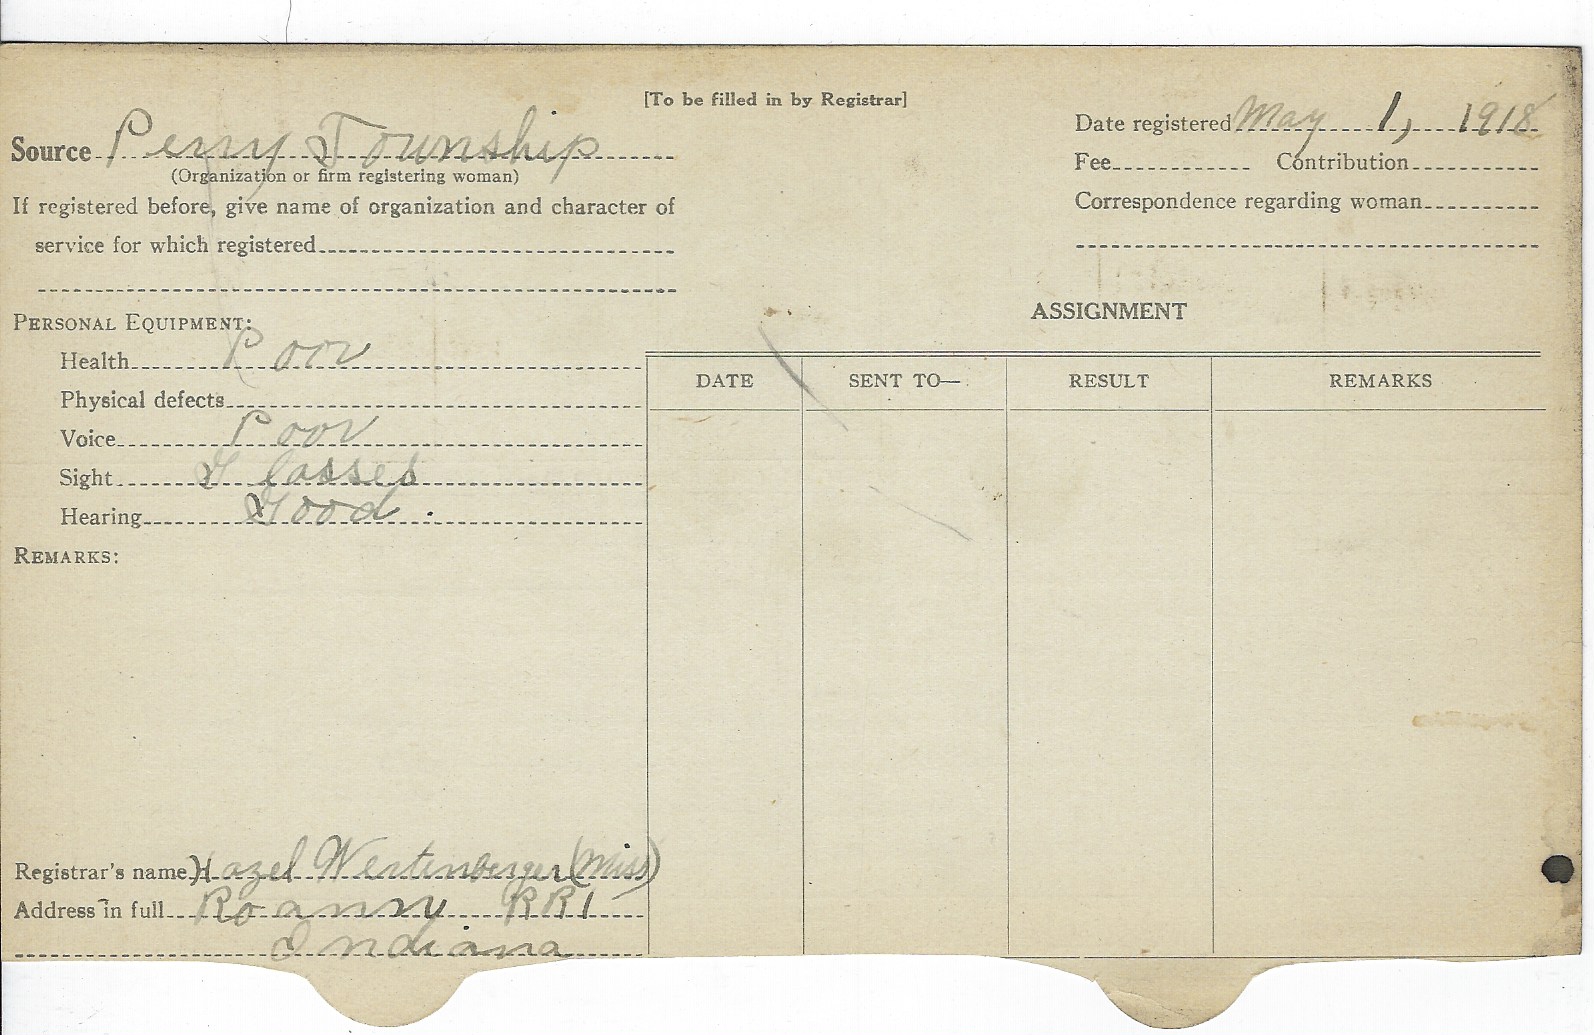 [To be filled in by Registrar]
Source Perry Township
(Organization or firm registering woman)
If registered before, give name of organization and character of
service for which registered
Date registered May 1, 1918
Fee Contribution
Correspondence regarding woman
PERSONAL EQUIPMENT:
Health Poor
Physical defects
Voice Poor
Sight Glasses
Hearing Good.
REMARKS:
Registrar's name Hazel Wertenberger (Miss)
Address in full Roann RR1
Indiana
ASSIGNMENT
DATE SENT TO— RESULT REMARKS